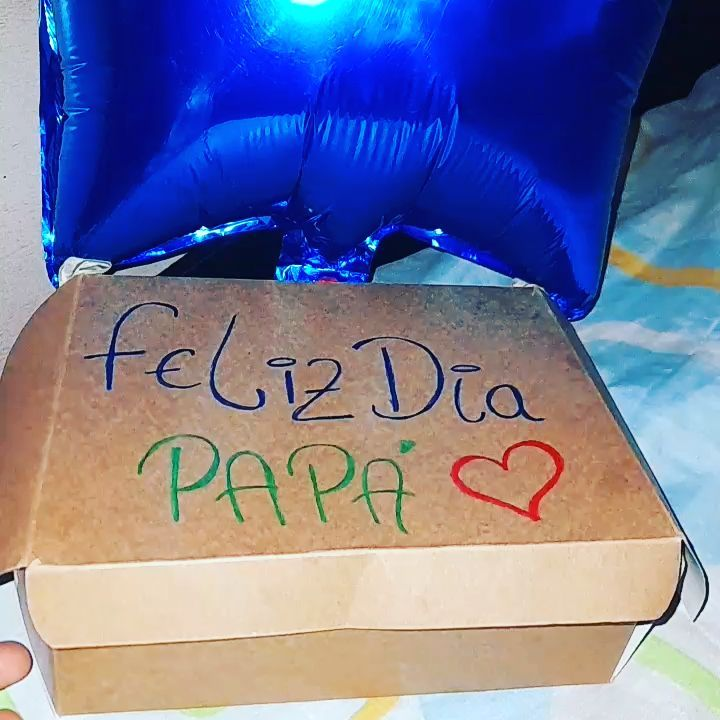 feliz Dia
PAPÁ